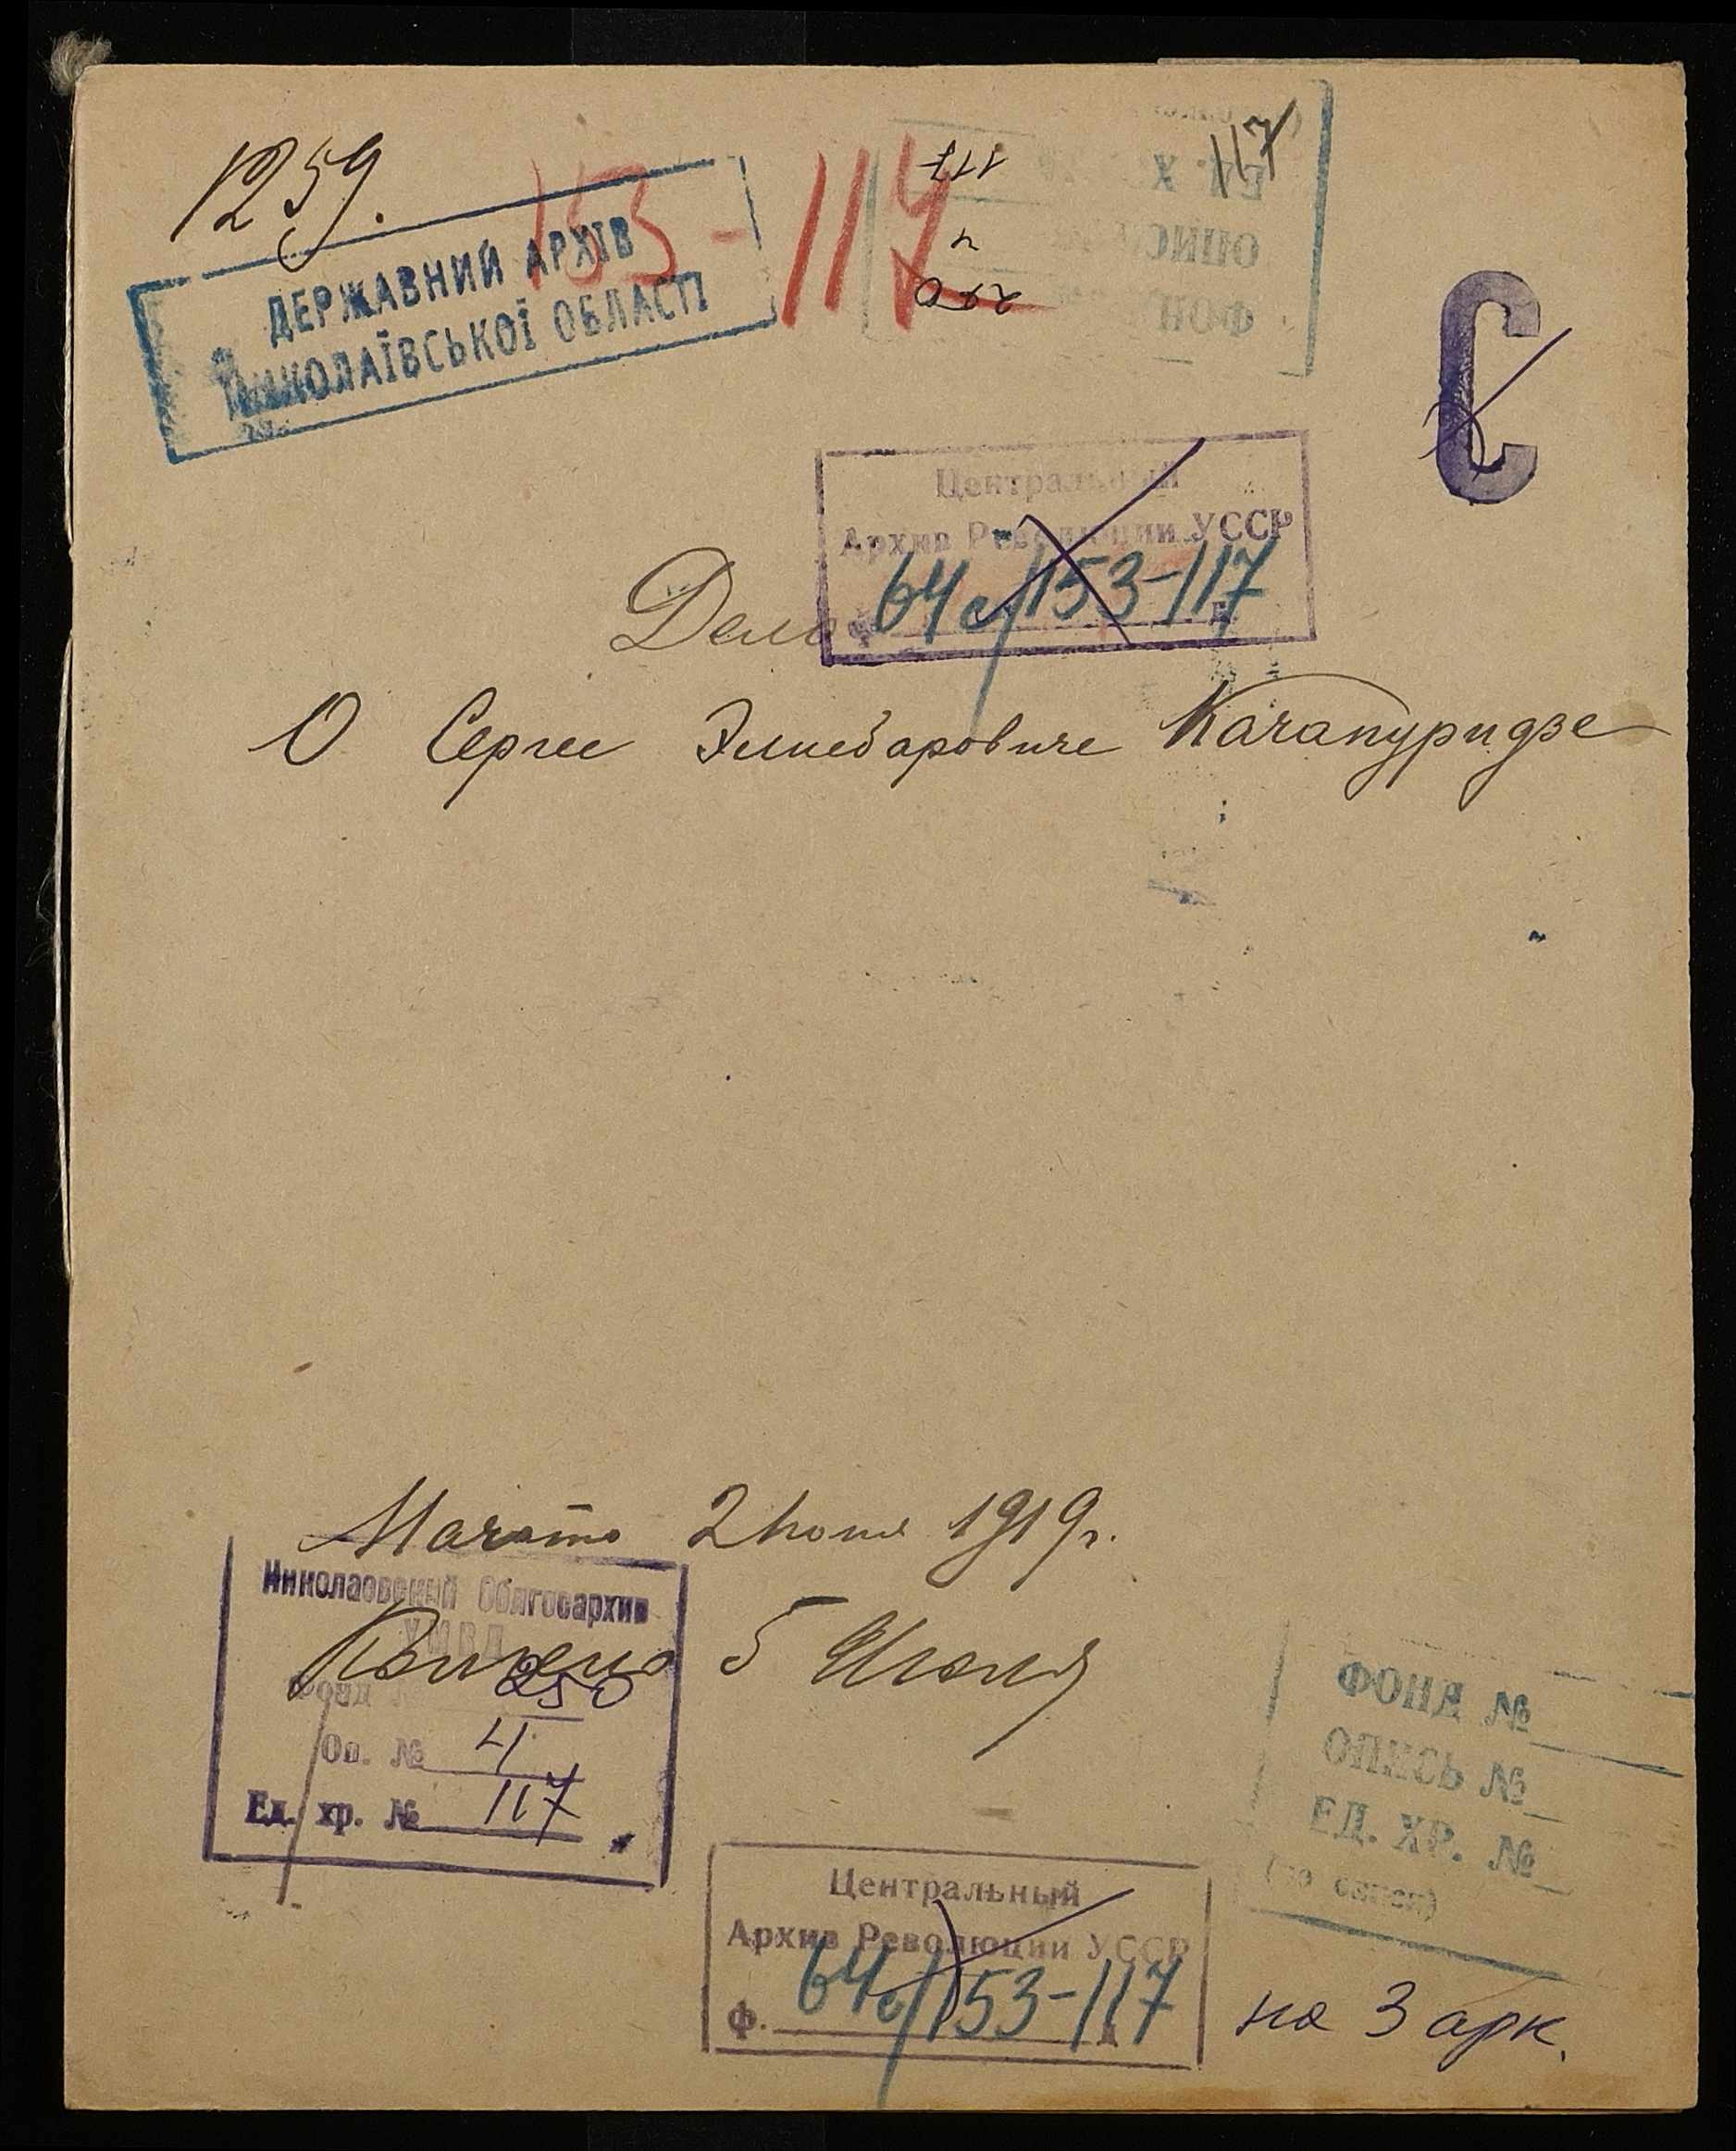 1259.
153-117
117
117
4
250
ЕД. Х
ОПИС
ФОН
ДЕРЖАВНИЙ АРХІВ
МИКОЛАЇВСЬКОЇ ОБЛАСТІ
С
Центральный
Архив Революции УССР
64с/153-117
Дело
О Сергее Элизбаровиче Качапуридзе
Начато 2 Июня 1919 г.
Николаевский Облгосархив
УМВД
Кончено 5 Июля
Фонд № 250
Оп. № 4
Ед. хр. № 117
ФОНД №
ОПИСЬ №
ЕД. ХР. №
(по описи)
Центральный
Архив Революции УССР
64с/153-117
Ф. д
на 3 арк.